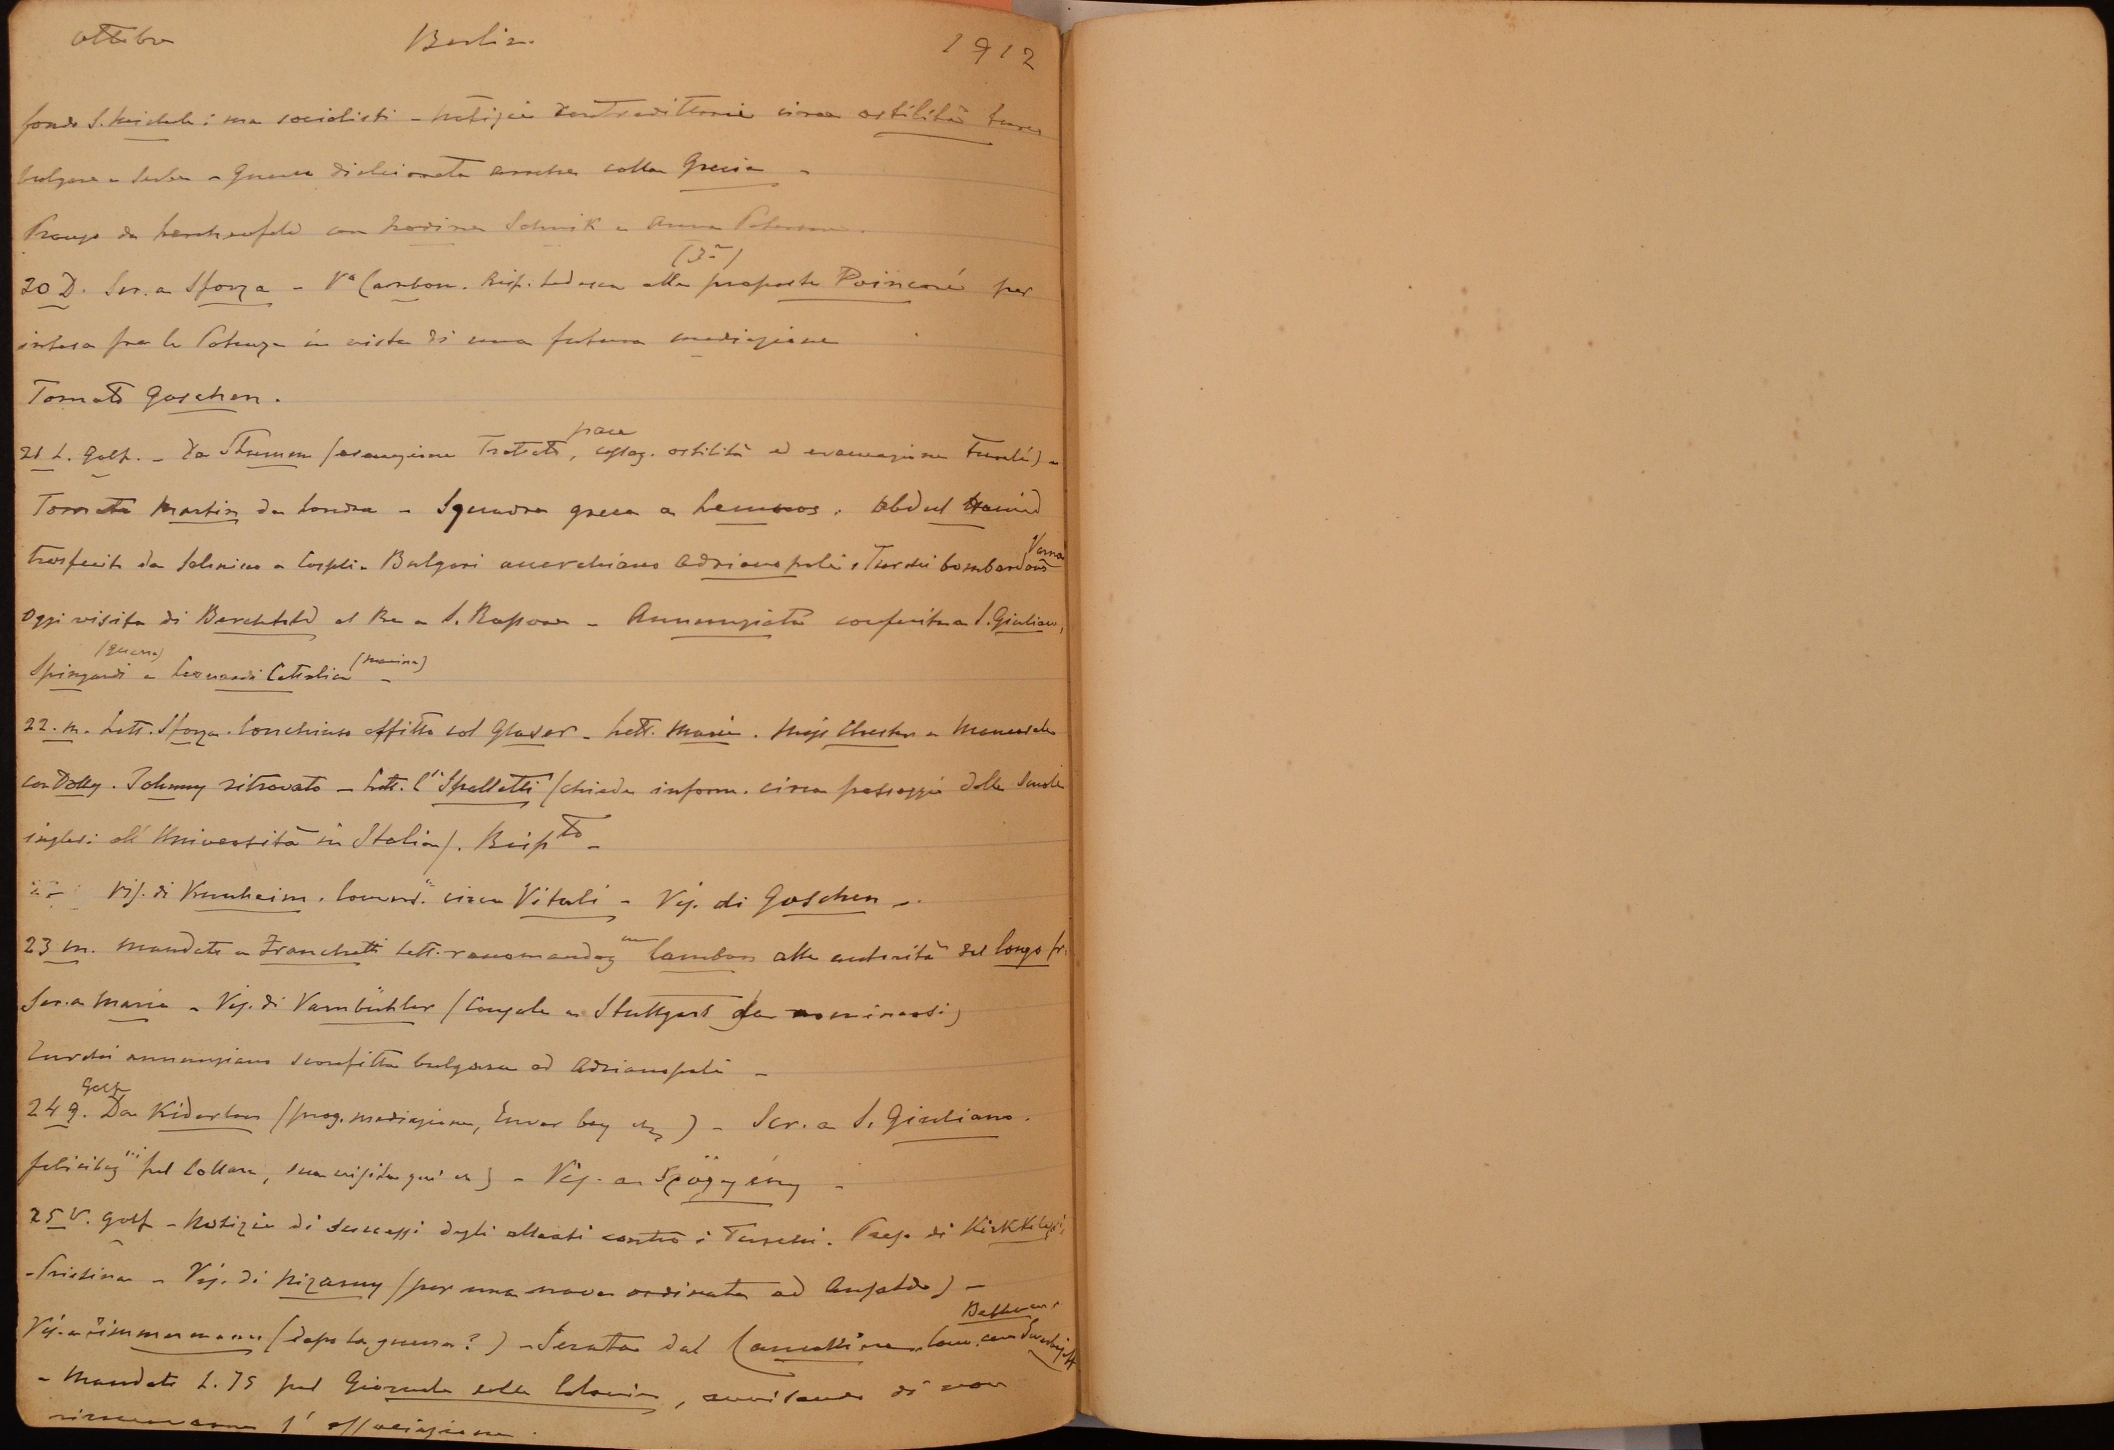 ottobre Berlin. 1912
socialisti - notizie contradittorie circa ostilità turco
bulgare e serbe - Guerra dichiarata anche colla Grecia -
Pranzo da Lerchenfeld con
20 D. Scr. a Sforza - Va Cambon. Risp. tedesca alla (3a) proposta Poincaré per
intesa fra le Potenze in vista di una futura mediazione
Tornato Goschen.
21 L. Golf. - Da Stumm (esecuzione Trattato pace, cessaz. ostilità ed evacuazione Turchi) -
Tornata Martin da Londra - Squadra greca a Lemnos. Abdul Hamid
trasferito da Salonicco a Cospli. Bulgari accerchiano Adrianopoli. Turchi bombardano Varna
Oggi visita di Berchtold al Re a S. Rossore - Annunziata conferita a S. Giuliano,
Spingardi (guerra) e Leonardi Cattolica (marina) -
22. M. Lett. Sforza. Conchiuso affitto col Glaser - Lett. Maria. Miss Chester a
con Dolly. Johnny ritrovato - Lett. Cssa Spalletti (chiede inform. circa passaggio dalle Scuole
inglesi all' Università in Italia). Risp to -
Vis. di Kunheim. circa Vitali - Vis. di Goschen -
23 m. Mandato a Franchetti lett. raccomandaz ne Cambon alle autorità del Congo fr.
Scr. a Maria - Vis. di Varnbühler (Console a Stuttgart da nominarsi)
Turchi annunziano sconfitta bulgara ad Adrianopoli -
24 g. Golf Da Kiderlen (prog. mediazione, Enver bey etc) - Scr. a S. Giuliano.
felicitaz ni pel Collare, sua visita qui ecc) - Vis. a Szögyény -
25 V. Golf - Notizie di successi degli alleati contro i Turchi. Presa di Kirkkilissi,
- Pristina - Vis. di Nizamy (per una nave ordinata ad Ansaldo) -
Vis. a Zimmermann (dopo la guerra?) - Serata dal Cancelliere. Conv. con Bethmann, Swerbejeff
- Mandato L. 75 pel Giornale delle Colonie, avvisando di non
rinnovare l' associazione.